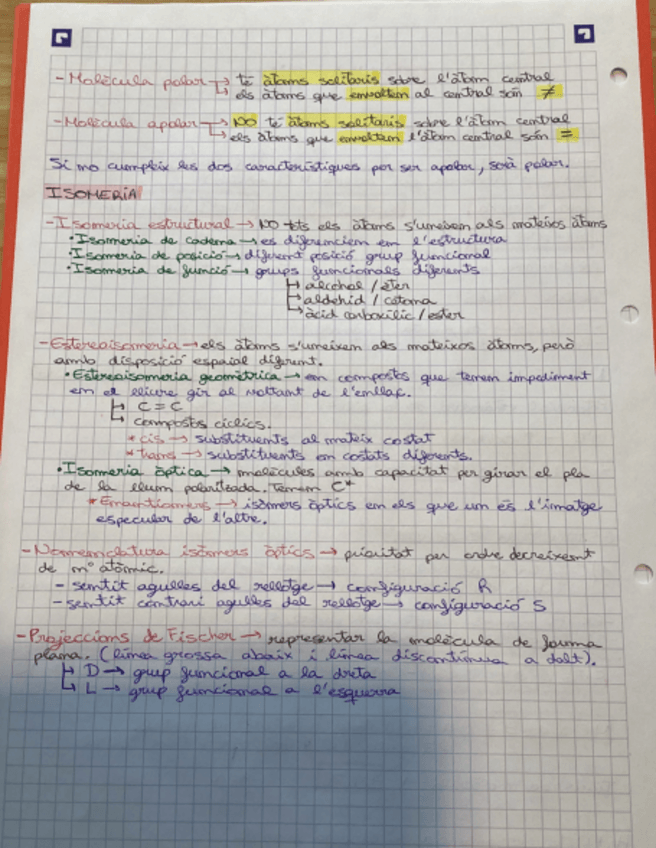 - Molècula polar → té àtoms solitaris sobre l'àtom central
↳ els àtoms que envolten al central són ≠
- Molècula apolar → NO té àtoms solitaris sobre l'àtom central
↳ els àtoms que envolten l'àtom central són =
Si no cumpleix les dos característiques per ser apolar, serà polar.
ISOMERIA
- Isomeria estructural → NO tots els àtoms s'uneixen als mateixos àtoms
• Isomeria de cadena → es diferencien en l'estructura
• Isomeria de posició → diferent posició grup funcional
• Isomeria de funció → grups funcionals diferents
↳ alcohol / èter
↳ aldehid / cetona
↳ àcid carboxílic / ester
- Estereoisomeria → els àtoms s'uneixen als mateixos àtoms, però
amb disposició espaial diferent.
• Estereoisomeria geomètrica → en compostos que tenen impediment
en el lliure gir al voltant de l'enllaç.
↳ C = C
↳ compostos cíclics.
* cis → substituents al mateix costat
* trans → substituents en costats diferents.
• Isomeria òptica → molècules amb capacitat per girar el pla
de la llum polaritzada. Tenen C*
* Enantiòmers → isòmers òptics en els que un és l'imatge
especular de l'altre.
- Nomenclatura isòmers òptics → prioritat per ordre decreixent
de nº atòmic.
- sentit agulles del rellotge → configuració R
- sentit contrari agulles del rellotge → configuració S
- Projeccions de Fischer → representar la molècula de forma
plana. (línea grossa abaix i línea discontínua a dalt).
↳ D → grup funcional a la dreta
↳ L → grup funcional a l'esquerra